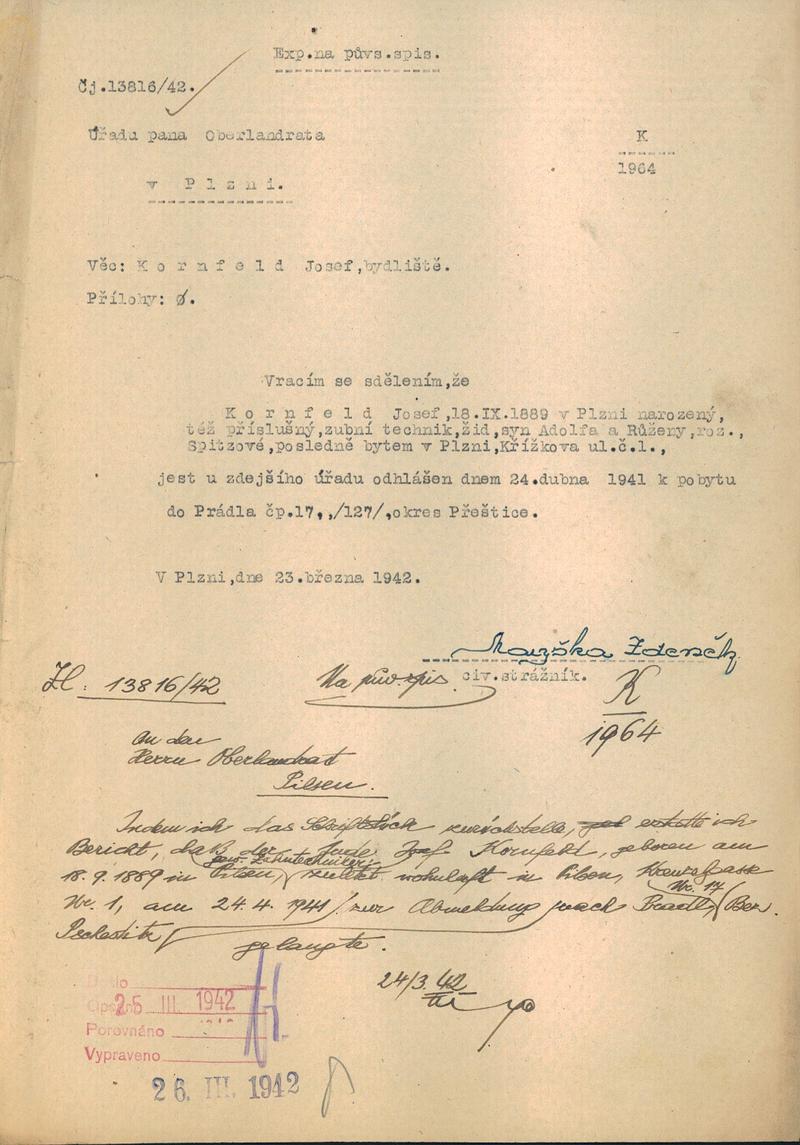 Exp.na půvs.spis.
Čj.13816/42.
Úřadu pana Oberlandrata
K
1964
v P l z n i.
Věc: K o r n f e l d Josef,bydliště.
Přílohy: ∅.
Vracím se sdělením,že
K o r n f e l d Josef,18.IX.1889 v Plzni narozený,
též příslušný,zubní technik,žid,syn Adolfa a Růženy,roz.,
Spitzové,posledně bytem v Plzni,Křížkova ul.č.1.,
jest u zdejšího úřadu odhlášen dnem 24.dubna 1941 k pobytu
do Prádla čp.17,,/127/,okres Přeštice.
V Plzni,dne 23.března 1942.
Zdeněk
civ.strážník.
Zl. 13816/42
Na pův. spis
K
1964
An den
Herrn Oberlandrat
Pilsen.
Indem ich das Schriftstück zurückstelle, erstatte ich
Bericht, daß der Jude Josef Kornfeld, geboren am
gew. Zahntechniker,
18.9.1889 in Pilsen, zuletzt wohnhaft in Pilsen,
Nr. 17
Nr. 1, am 24.4.1941 zur Abmeldung nach Bez.
gelangte.
24/3.42
Došlo
Opsáno 25 III. 1942
Porovnáno
Vypraveno
26. III. 1942